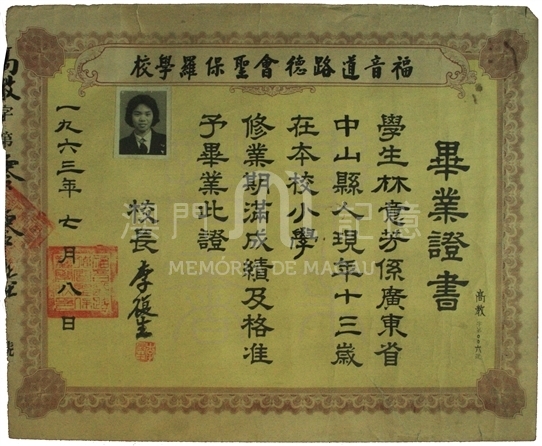 福音道路德會聖保羅學校
畢業證書
學生林意芳係廣東省
中山縣人現年十三歲
在本校小學
修業期滿成績及格准
予畢業此證
校長 李俊生
一九六三年七月八日
高教
澳門記憶
MEMÓRIA DE MACAU